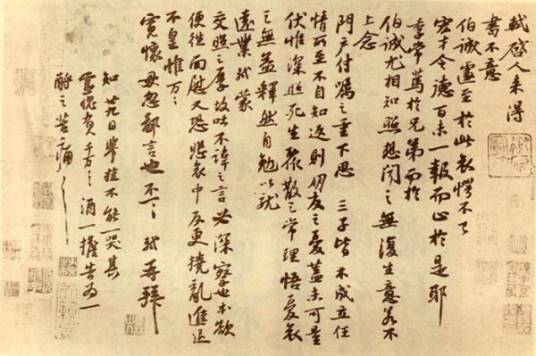 軾啓人來得
書不意
伯誠遽至於此哀愕不已
宏才令德百未一報而止於是耶
季常篤於兄弟而於
伯誠尤相知照想聞之無復生意若不
上念
門户付囑之重下思三子皆不成立任
情所至不自知返則朋友之憂蓋未可量
伏惟深照死生聚散之常理悟憂哀
之無益釋然自勉以就
遠業軾蒙
交照之厚故吐不諱之言必深察也本欲
便往面慰又恐悲哀中反更撓亂進退
不皇惟万〻
寬懷毋忽鄙言也不一〻軾再拜
知廿九日舉挂不能一哭其
靈愧負千万〻〻酒一擔告為一
酹之苦痛〻〻